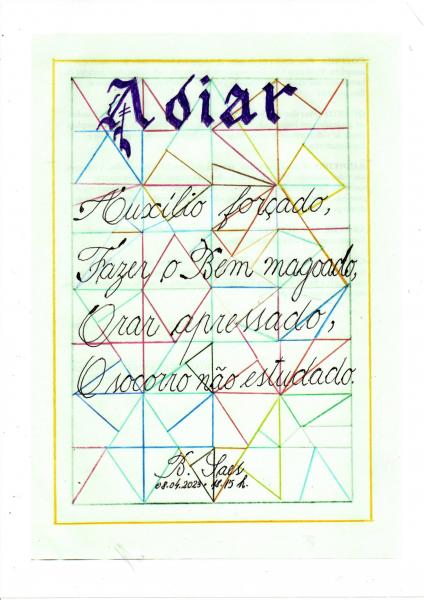 Adiar
Auxílio forçado,
Fazer o Bem magoado,
Orar apressado,
O socorro não estudado.
B. Saes
08.04.2023